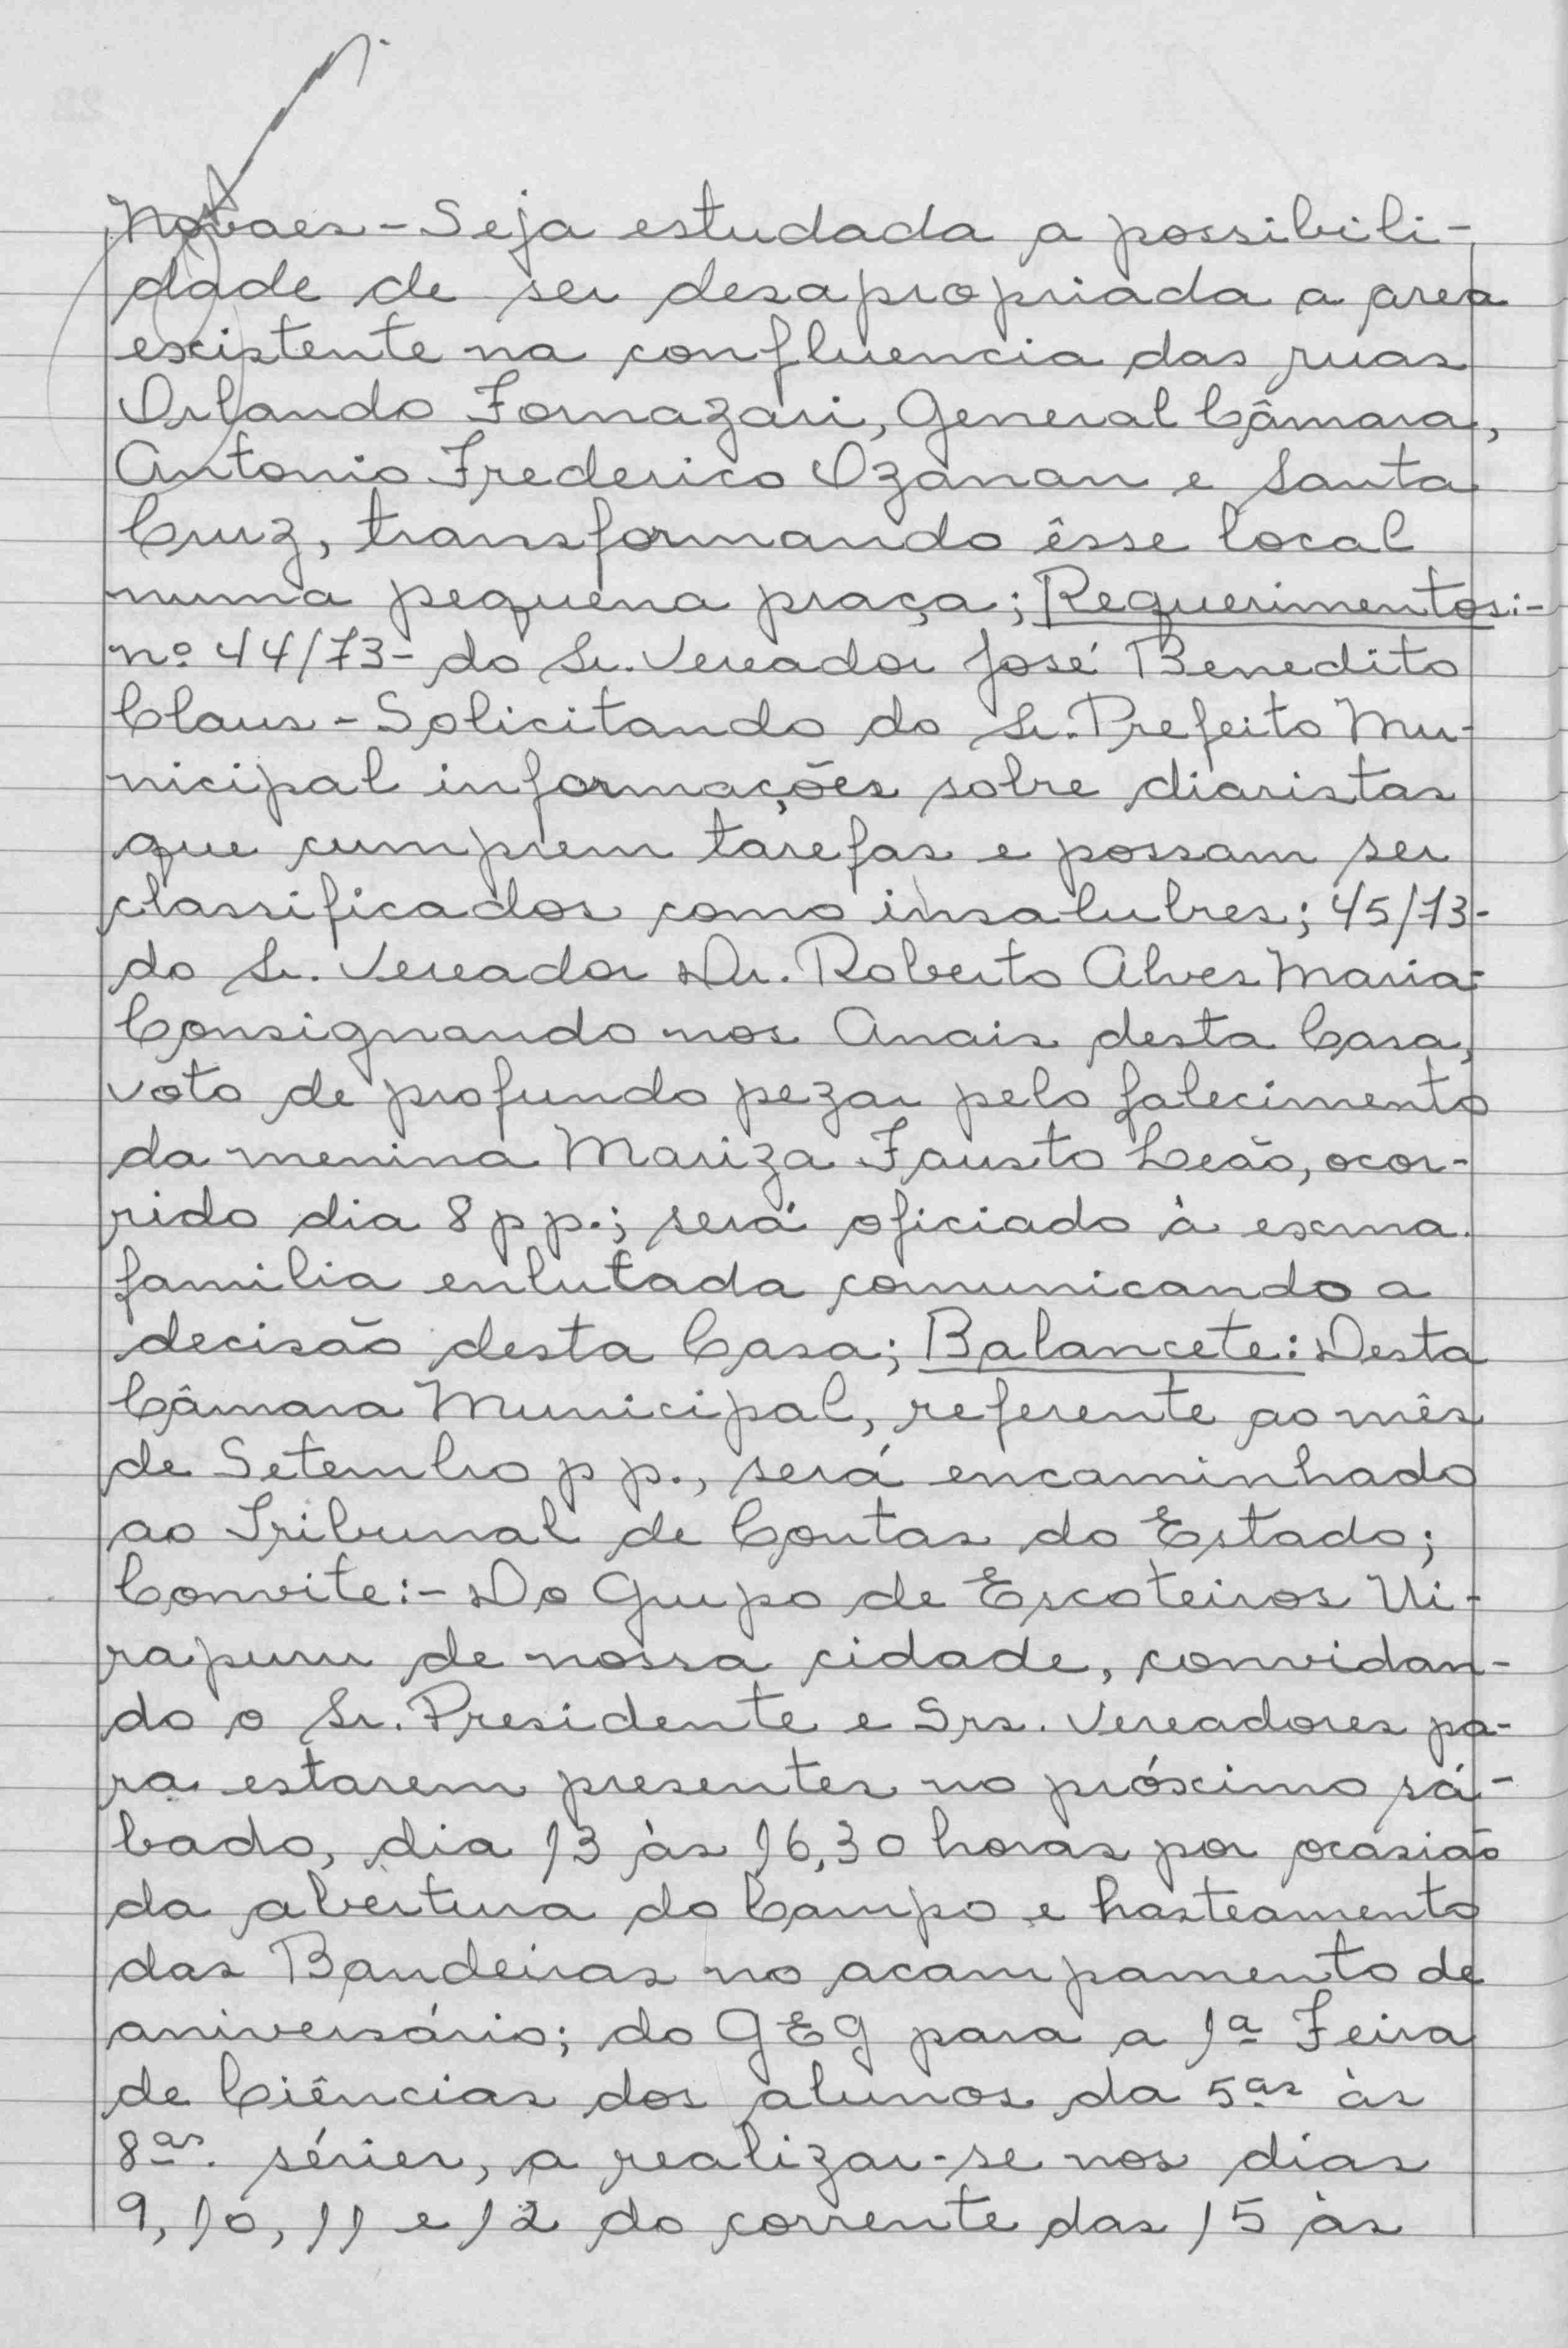 Novaes - Seja estudada a possibili-
dade de ser desapropriada a area
existente na confluencia das ruas
Orlando Fornazari, General Câmara,
Antonio Frederico Ozanan e Santa
Cruz, transformando êsse local
numa pequena praça; Requerimentos:-
nº 44/73 - do Sr. Vereador José Benedito
Claus - Solicitando do Sr. Prefeito Mu-
nicipal informações sobre diaristas
que cumprem tarefas e possam ser
classificados como insalubres; 45/73 -
do Sr. Vereador Dr. Roberto Alves Maria -
Consignando nos Anais desta Casa,
voto de profundo pezar pelo falecimento
da menina Mariza Fausto Leão, ocor-
rido dia 8 pp.; será oficiado à exma.
familia enlutada comunicando a
decisão desta Casa; Balancete: Desta
Câmara Municipal, referente ao mês
de Setembro pp., será encaminhado
ao Tribunal de Contas do Estado;
Convite:- Do Grupo de Escoteiros Ui-
rapuru de nossa cidade, convidan-
do o Sr. Presidente e Srs. Vereadores pa-
ra estarem presentes no próximo sá-
bado, dia 13 às 16,30 horas por ocasião
da abertura do Campo e hasteamento
das Bandeiras no acampamento de
aniversário; do GEG para a 1ª Feira
de Ciências dos alunos da 5ªs às
8ªs. séries, a realizar-se nos dias
9, 10, 11 e 12 do corrente das 15 às